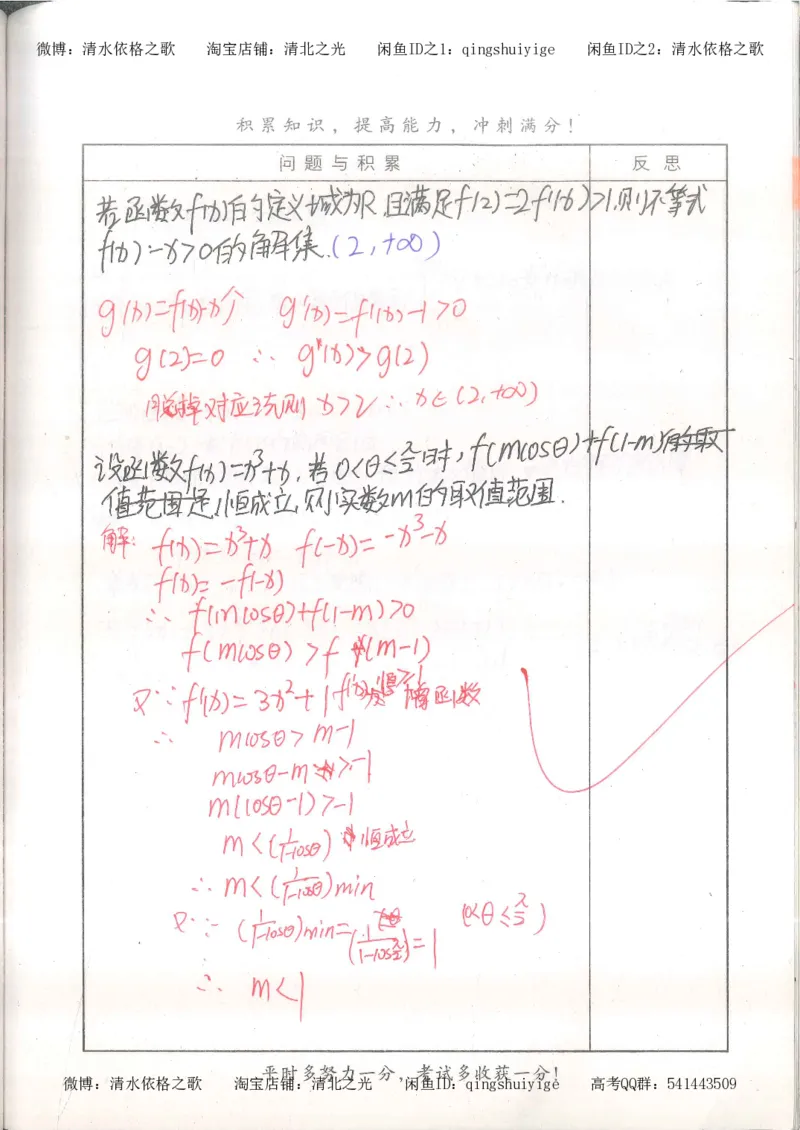 微博：清水依格之歌 淘宝店铺：清北之光 闲鱼ID之1：qingshuiyige 闲鱼ID之2：清水依格之歌
积累知识，提高能力，冲刺满分！
问题与积累 反思
若函数f(x)的定义域为R 且满足f(2)=2 f'(x)>1,则不等式
f(x)-x>0的解集.(2,+∞)
g(x)=f(x)-x个 g'(x)=f'(x)-1>0
g(2)=0 ∴ g(x)>g(2)
脱掉对应法则 x>2 ∴ x∈(2,+∞)
设函数f(x)=x³+x,若0<θ≤π/2时,f(mcosθ)+f(1-m)的取
值范围是 恒成立,则实数m的取值范围.
解: f(x)=x³+x f(-x)=-x³-x
f(x)=-f(-x)
∴ f(mcosθ)+f(1-m)>0
f(mcosθ)>f(m-1)
又∵f'(x)=3x²+1 f'(x)恒≥1 增函数
∴ mcosθ>m-1
mcosθ-m>-1
m(cosθ-1)>-1
m<(1/1-cosθ) 恒成立
∴ m<(1/1-cosθ)min
又∵ (1/1-cosθ)min=(1/1-cosπ/2)=1 (0<θ≤π/2)
∴ m<1
平时多努力一分，考试多收获一分！
微博：清水依格之歌 淘宝店铺：清北之光 闲鱼ID：qingshuiyige 高考QQ群：541443509